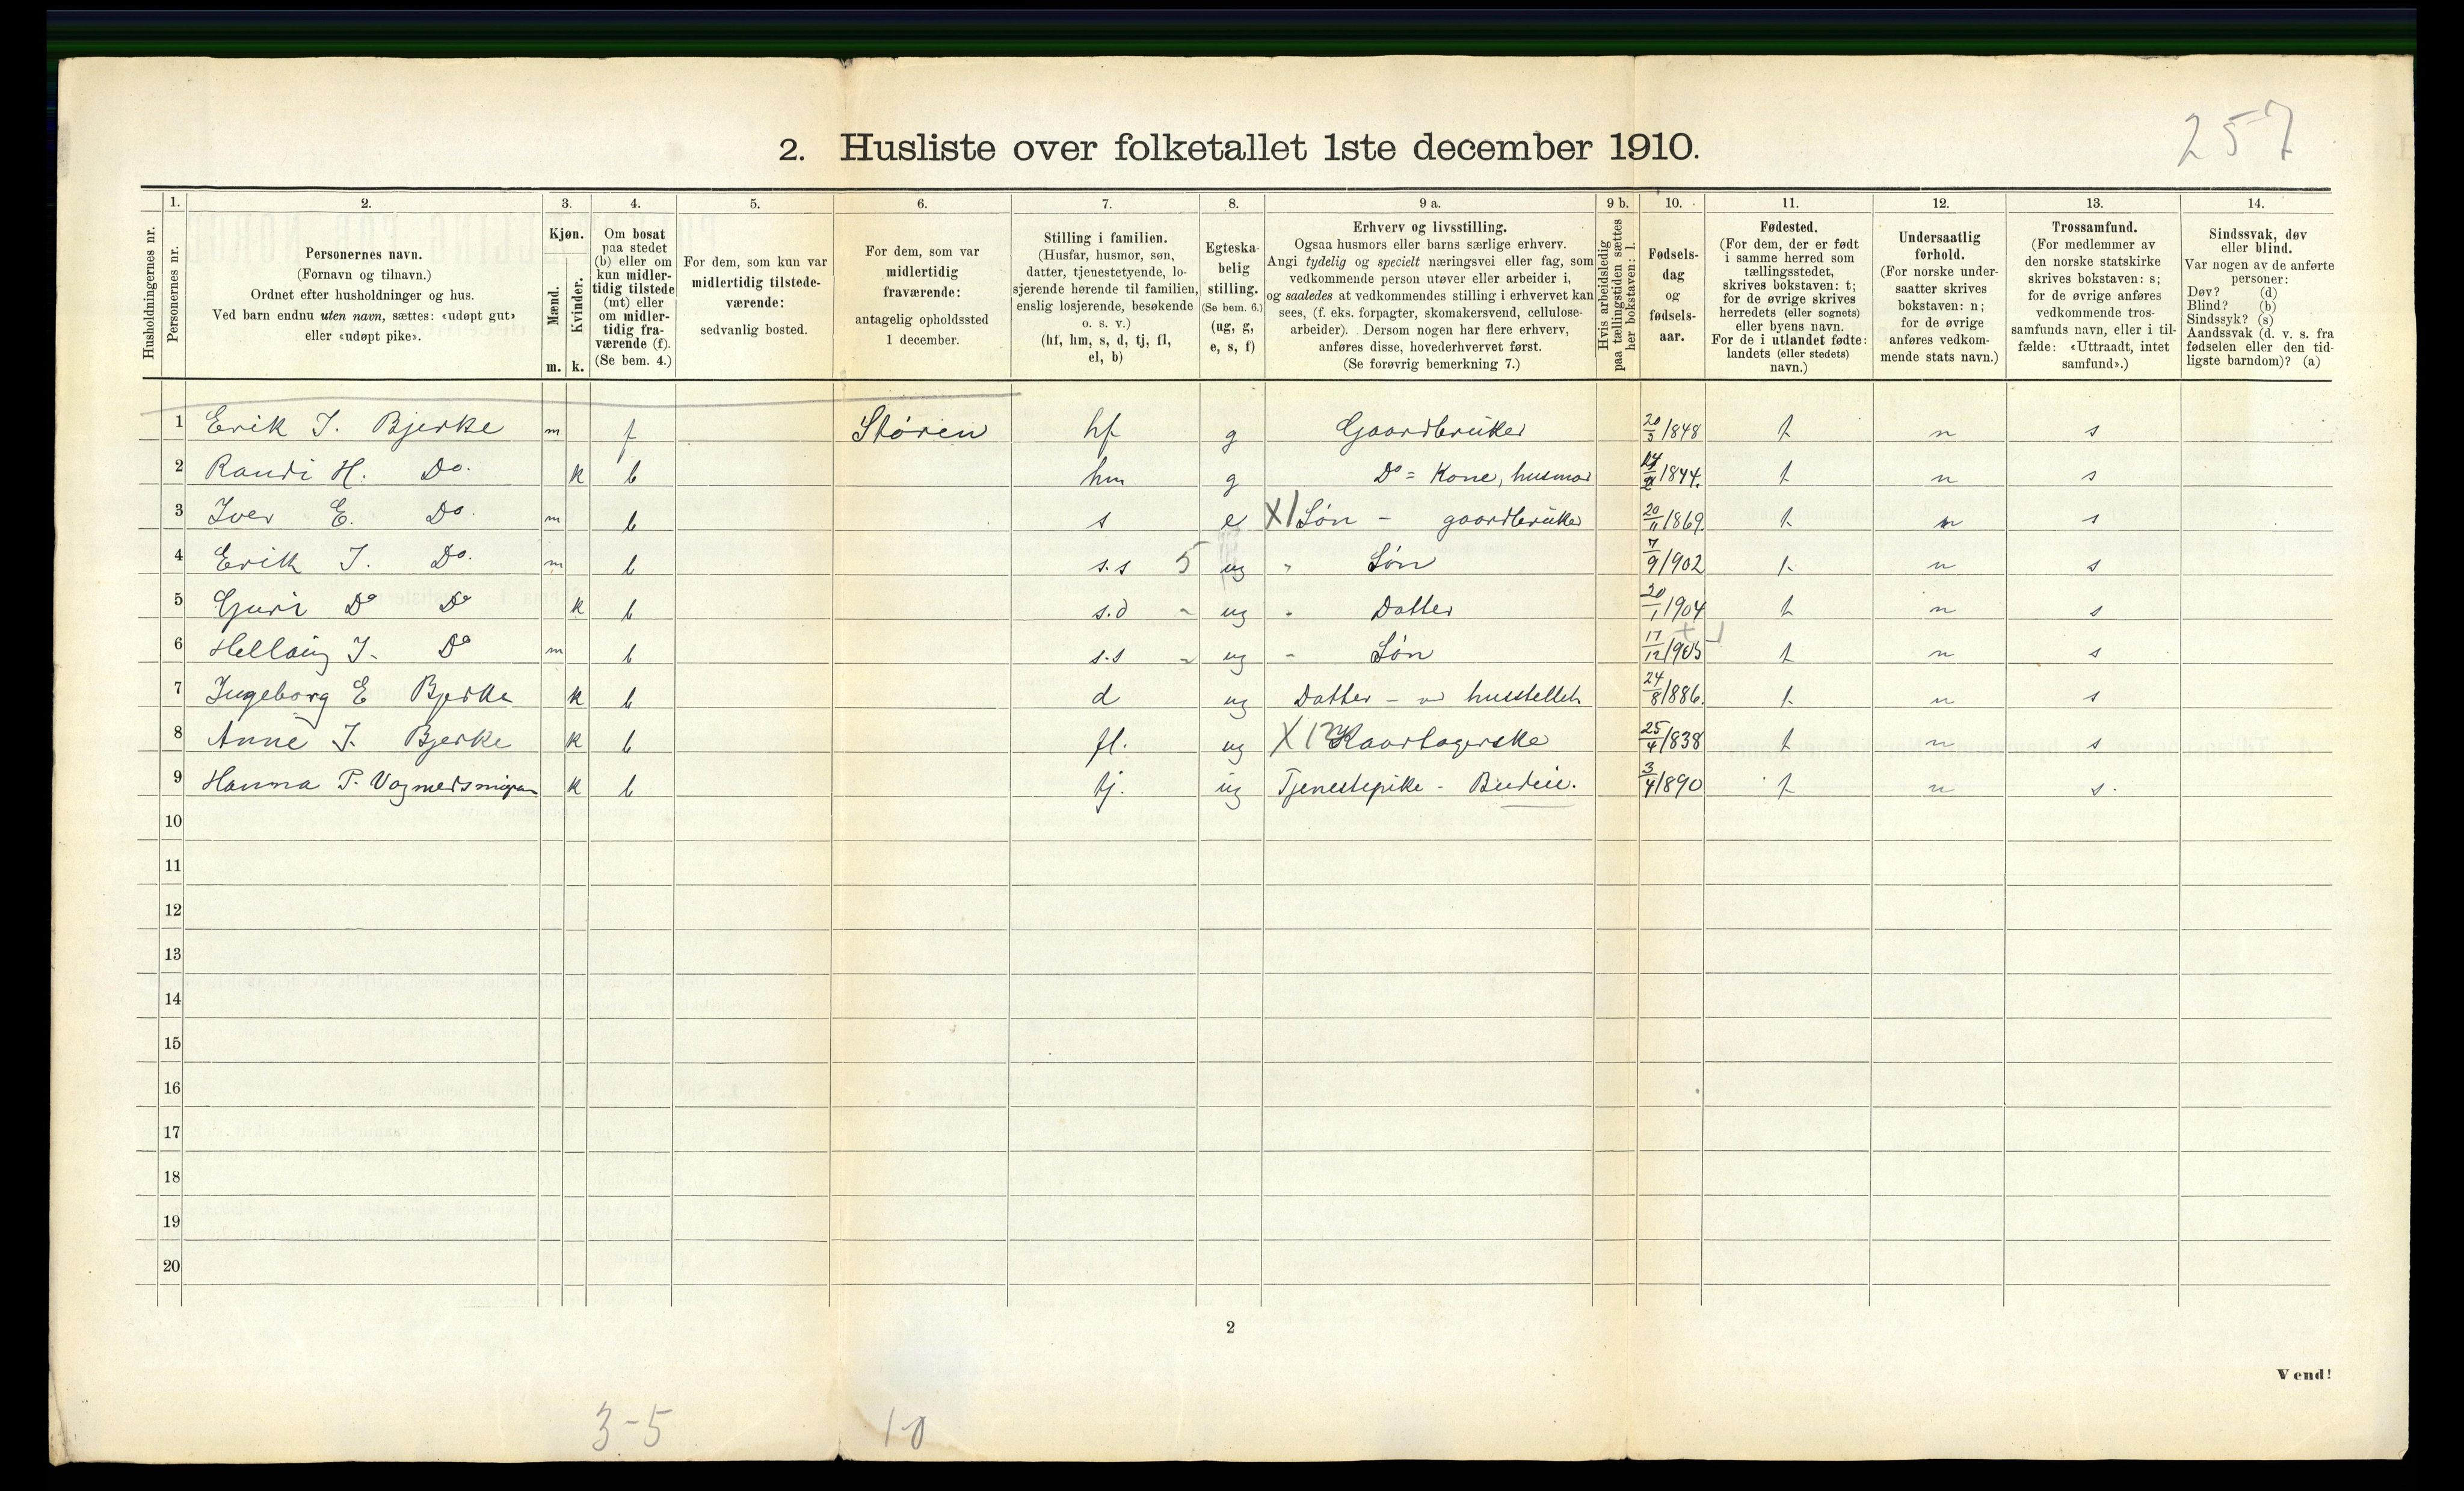 257
2. Husliste over folketallet 1ste december 1910.
Husholdningernes nr.
1.
Personernes nr.
2.
Personernes navn.
(Fornavn og tilnavn.)
Ordnet efter husholdninger og hus.
Ved barn endnu uten navn, sættes: «udøpt gut»
eller «udøpt pike».
3.
Kjøn.
Mænd.
Kvinder.
m. k.
4.
Om bosat
paa stedet
(b) eller om
kun midler-
tidig tilstede
(mt) eller
om midler-
tidig fra-
værende (f).
(Se bem. 4.)
5.
For dem, som kun var
midlertidig tilstede-
værende:
sedvanlig bosted.
6.
For dem, som var
midlertidig
fraværende:
antagelig opholdssted
1 december.
7.
Stilling i familien.
(Husfar, husmor, søn,
datter, tjenestetyende, lo-
sjerende hørende til familien,
enslig losjerende, besøkende
o. s. v.)
(hf, hm, s, d, tj, fl,
el, b)
8.
Egteska-
belig
stilling.
(Se bem. 6.)
(ug, g,
e, s, f)
9 a.
Erhverv og livsstilling.
Ogsaa husmors eller barns særlige erhverv.
Angi tydelig og specielt næringsvei eller fag, som
vedkommende person utøver eller arbeider i,
og saaledes at vedkommendes stilling i erhvervet kan
sees, (f. eks. forpagter, skomakersvend, cellulose-
arbeider). Dersom nogen har flere erhverv,
anføres disse, hovederhvervet først.
(Se forøvrig bemerkning 7.)
9 b.
Hvis arbeidsledig
paa tællingstiden sættes
her bokstaven: l.
10.
Fødsels-
dag
og
fødsels-
aar.
11.
Fødested.
(For dem, der er født
i samme herred som
tællingsstedet,
skrives bokstaven: t;
for de øvrige skrives
herredets (eller sognets)
eller byens navn.
For de i utlandet fødte:
landets (eller stedets)
navn.)
12.
Undersaatlig
forhold.
(For norske under-
saatter skrives
bokstaven: n;
for de øvrige
anføres vedkom-
mende stats navn.)
13.
Trossamfund.
(For medlemmer av
den norske statskirke
skrives bokstaven: s;
for de øvrige anføres
vedkommende tros-
samfunds navn, eller i til-
fælde: «Uttraadt, intet
samfund».)
14.
Sindssvak, døv
eller blind.
Var nogen av de anførte
personer:
Døv? (d)
Blind? (b)
Sindssyk? (s)
Aandssvak (d. v. s. fra
fødselen eller den tid-
ligste barndom)? (a)
1 Erik J. Bjerke m f Støren hf g Gaardbruker 20/3 1848 t n s
2 Randi H. Do. k b hm g Do = Kone, husmor 1844. t n s
3 Iver E. Do. m b s e X1 Søn - gaardbruker 20/11 1869. t n s
4 Erik J. Do. m b s.s 5 ug " Søn 7/9 1902 t n s
5 Guri Do Do k b s.d - ug " Datter 20/1 1904 t n s
6 J. Do m b s.s - ug - Søn 17/12 1905 t n s
7 Ingeborg E Bjerke k b d ug Datter - v husstellet 24/8 1886. t n s
8 Anne J. Bjerke k b fl. ug X 12 Kaartagerske 25/4 1838 t n s
9 Hanna P. k b tj. ug Tjenestepike - Budeie. 3/4 1890 t n s.
10
11
12
13
14
15
16
17
18
19
20
2
Vend!
3-5 1-0